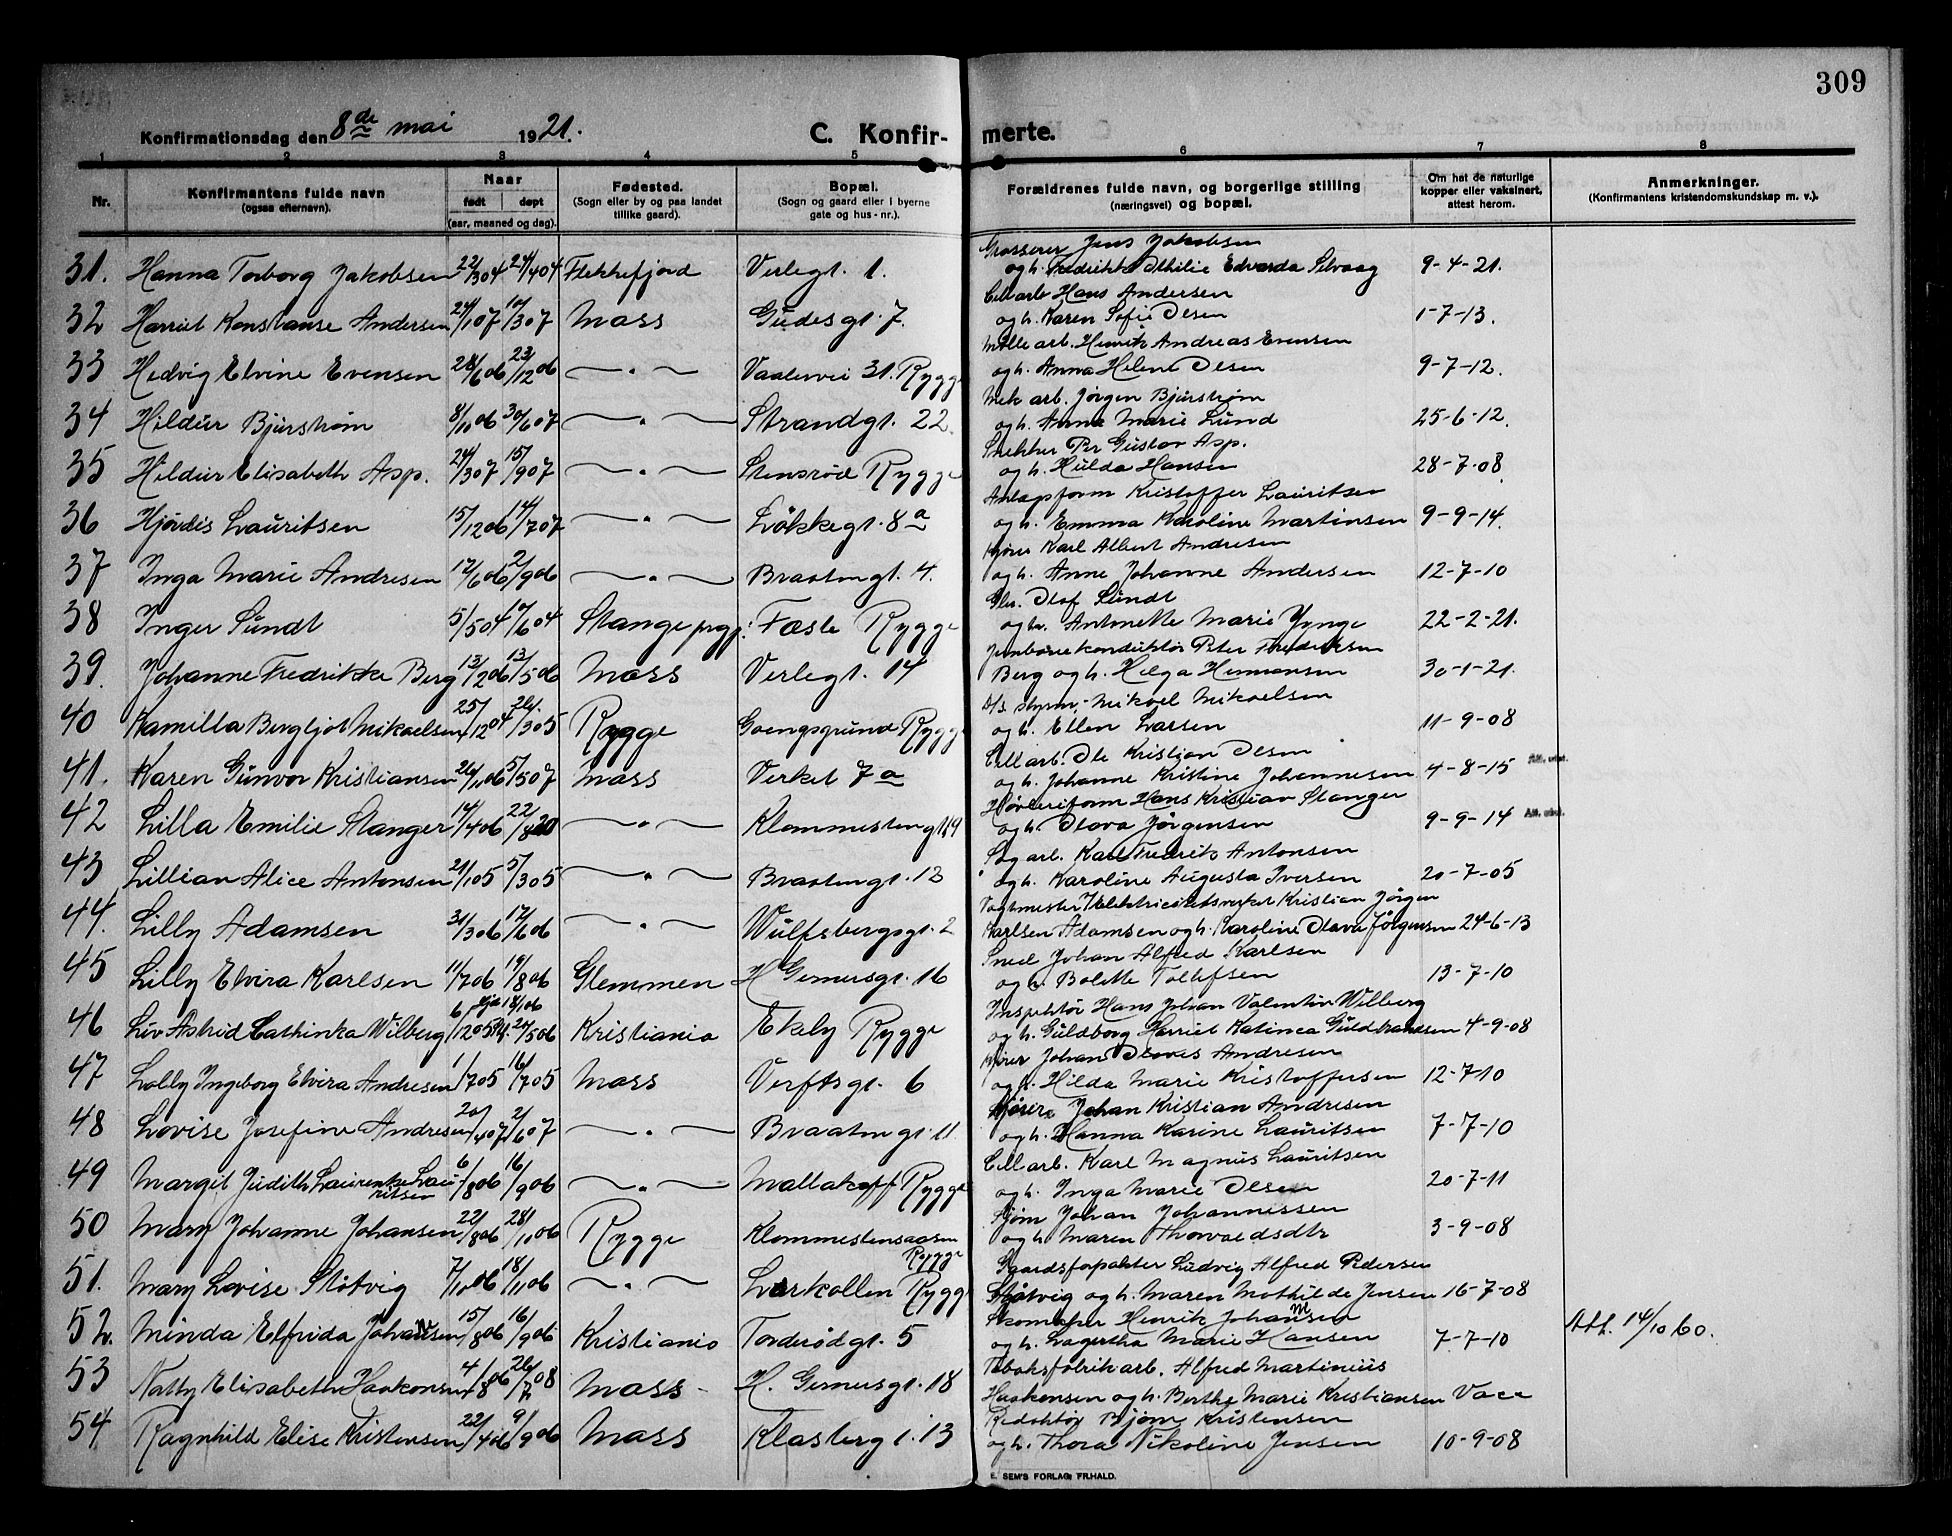 309
Konfirmationsdag den 8de mai 1921.
C. Konfirmerte.
1 2 3 4 5 6 7 8
Nr.
Konfirmantens fulde navn
(ogsaa efternavn).
Naar
født døpt
(aar, maaned og dag).
Fødested.
(Sogn eller by og paa landet
tillike gaard).
Bopæl.
(Sogn og gaard eller i byerne
gate og hus-nr.).
Forældrenes fulde navn, og borgerlige stilling
(næringsvei) og bopæl.
Om hat de naturlige
kopper eller vaksinert,
attest herom.
Anmerkninger.
(Konfirmantens kristendomskundskap m. v.).
Grosserer Jens Jakobsen
31. Hanna Torborg Jakobsen 22/3 04 24/4 04 Flekkefjord Verlegt. 1. og h. Fredrikke Edvarda 9-4-21.
Cell arb Hans Andersen
32 Harriet Konstanse Andersen 24/1 07 10/3 07 Moss Gudesgt. 7. og h. Karen Sofie Olsen 1-7-13.
Mølle arb. Henrik Andreas Evensen
33 Hedvig Elvine Evensen 28/6 06 23/12 06 — " — Vaalervei 31. Rygge og h. Anna Helene Olsen 9-7-12.
Mek arb. Jørgen Bjurstrøm
34 Hildur Bjurstrøm 8/10 06 30/6 07 — " — Strandgt. 22 og h. Anna Marie Lund 25-6-12.
Snekker Per Gustav Asp.
35 Hildur Elisabeth Asp. 24/3 07 15/9 07 — " — Stensrød Rygge og h. Hulda Hansen 28-7-08
Anlægsform Kristoffer Lauritsen
36 Hjørdis Lauritsen 15/12 06 14/7 07 — " — Løkkegt. 8a og h. Emma Karoline Martinsen 9-9-14.
Kjører Karl Albert Andresen
37 Inga Marie Andresen 17/6 06 2/9 06 — " — Braatengt. 4. og h. Anne Johanne Andersen 12-7-10
Olaf Sundt
38 Inger Sundt 5/5 04 17/6 04 Stange prgj. Fæste Rygge og h. Antonette Marie Lynge 22-2-21.
Jernbanekonduktør Peter Fredriksen
39. Johanne Fredrikke Berg 13/2 06 13/5 06 Moss Verlegt. 14 Berg og h. Helga Hermansen 30-1-21.
D/s styrm. Mikael Mikaelsen
40 Kamilla Bergljot Mikaelsen 25/12 04 26/3 05 Rygge Gaengsgrund Rygge og h. Ellen Larsen 11-9-08
Cell arb. Ole Kristian Olsen
41. Karen Gunvor Kristiansen 26/1 06 5/5 07 Moss Verket 7a og h. Johanne Kristine Johannesen 4-8-15 Att. utst.
Høvleriform Hans Kristian Stanger
42 Lilla Emilie Stanger 14/4 06 22/8 20 — " — Klommestengt 19 og h. Olava Jørgensen 9-9-14 Att. utst.
Sag arb. Karl Fredrik Antonsen
43 Lillian Alice Antonsen 21/1 05 5/3 05 — " — Braatengt. 12 og h. Karoline Augusta Iversen 20-7-05
Vagtmester v/Elektricitetsverket Kristian Jørgen
44. Lilly Adamsen 31/3 06 17/6 06 — " — Wulfsbergsgt. 2 Karlsen Adamsen og h. Karoline Olava Jørgensen 24-6-13
Sned Johan Alfred Karlsen
45 Lilly Elvira Karlsen 11/7 06 19/8 06 Glemmen H Gernersgt. 16 og h. Bolette Tollefsen 13-7-10
Inspektør Hans Johan Valentin Wilberg
46 Liv Astrid Cathinka Wilberg 6/12 05 hjd. 18/1 06 St. 24/5 06 Kristiania Ekely Rygge og h. Guldborg Harriet Katinca Guldbrandsen 4-9-08
Kjører Johan Olaves Andresen
47 Lolly Ingeborg Elvira Andresen 1/7 05 16/7 05 Moss Verftsgt. 6 og h. Hilda Marie Kristoffersen 12-7-10
Kjører Johan Kristian Andresen
48 Lovise Josefine Andresen 20/4 07 2/6 07 — " — Braatengt. 11. og h. Hanna Karine Lauritsen 7-7-10
Cell arb. Karl Magnus Lauritsen
49 Margit Judith Laurenke Lauritsen 6/8 06 16/9 06 — " — Mallakoff Rygge og h. Inga Marie Olsen 20-7-11
Sjøm Johan Johannissen
50 Mary Johanne Johansen 22/8 06 28/10 06 Rygge Klommestensaasen Rygge og h Maren Thorvaldsdtr 3-9-08
Gaardsforpakter Ludvig Alfred Pedersen
51. Mary Lovise Støtvig 7/10 06 18/11 06 — " — Larkollen Rygge Støtvig og h. Maren Mathilde Jensen 16-7-08
Skomaker Henrik Johansen
52. Minda Elfrida Johansen 15/8 06 16/9 06 Kristiania Torderødgt. 5 og h. Lagertha Marie Hansen 7-7-10 Att. 14/10 60.
Tobaksfabrikarb. Alfred Martinius
53 Natty Elisabeth Haakonsen 4/8 06 26/7 08 Moss H. Gernersgt. 18 Haakonsen og h. Berthe Marie Kristiansen Vacc
Redaktør Bjørn Kristensen
54 Ragnhild Elise Kristensen 22/4 06 9/9 06 Moss Klasberg i. 13 og h. Thora Nikoline Jensen 10-9-08
E. SEM'S FORLAG, FR.HALD.